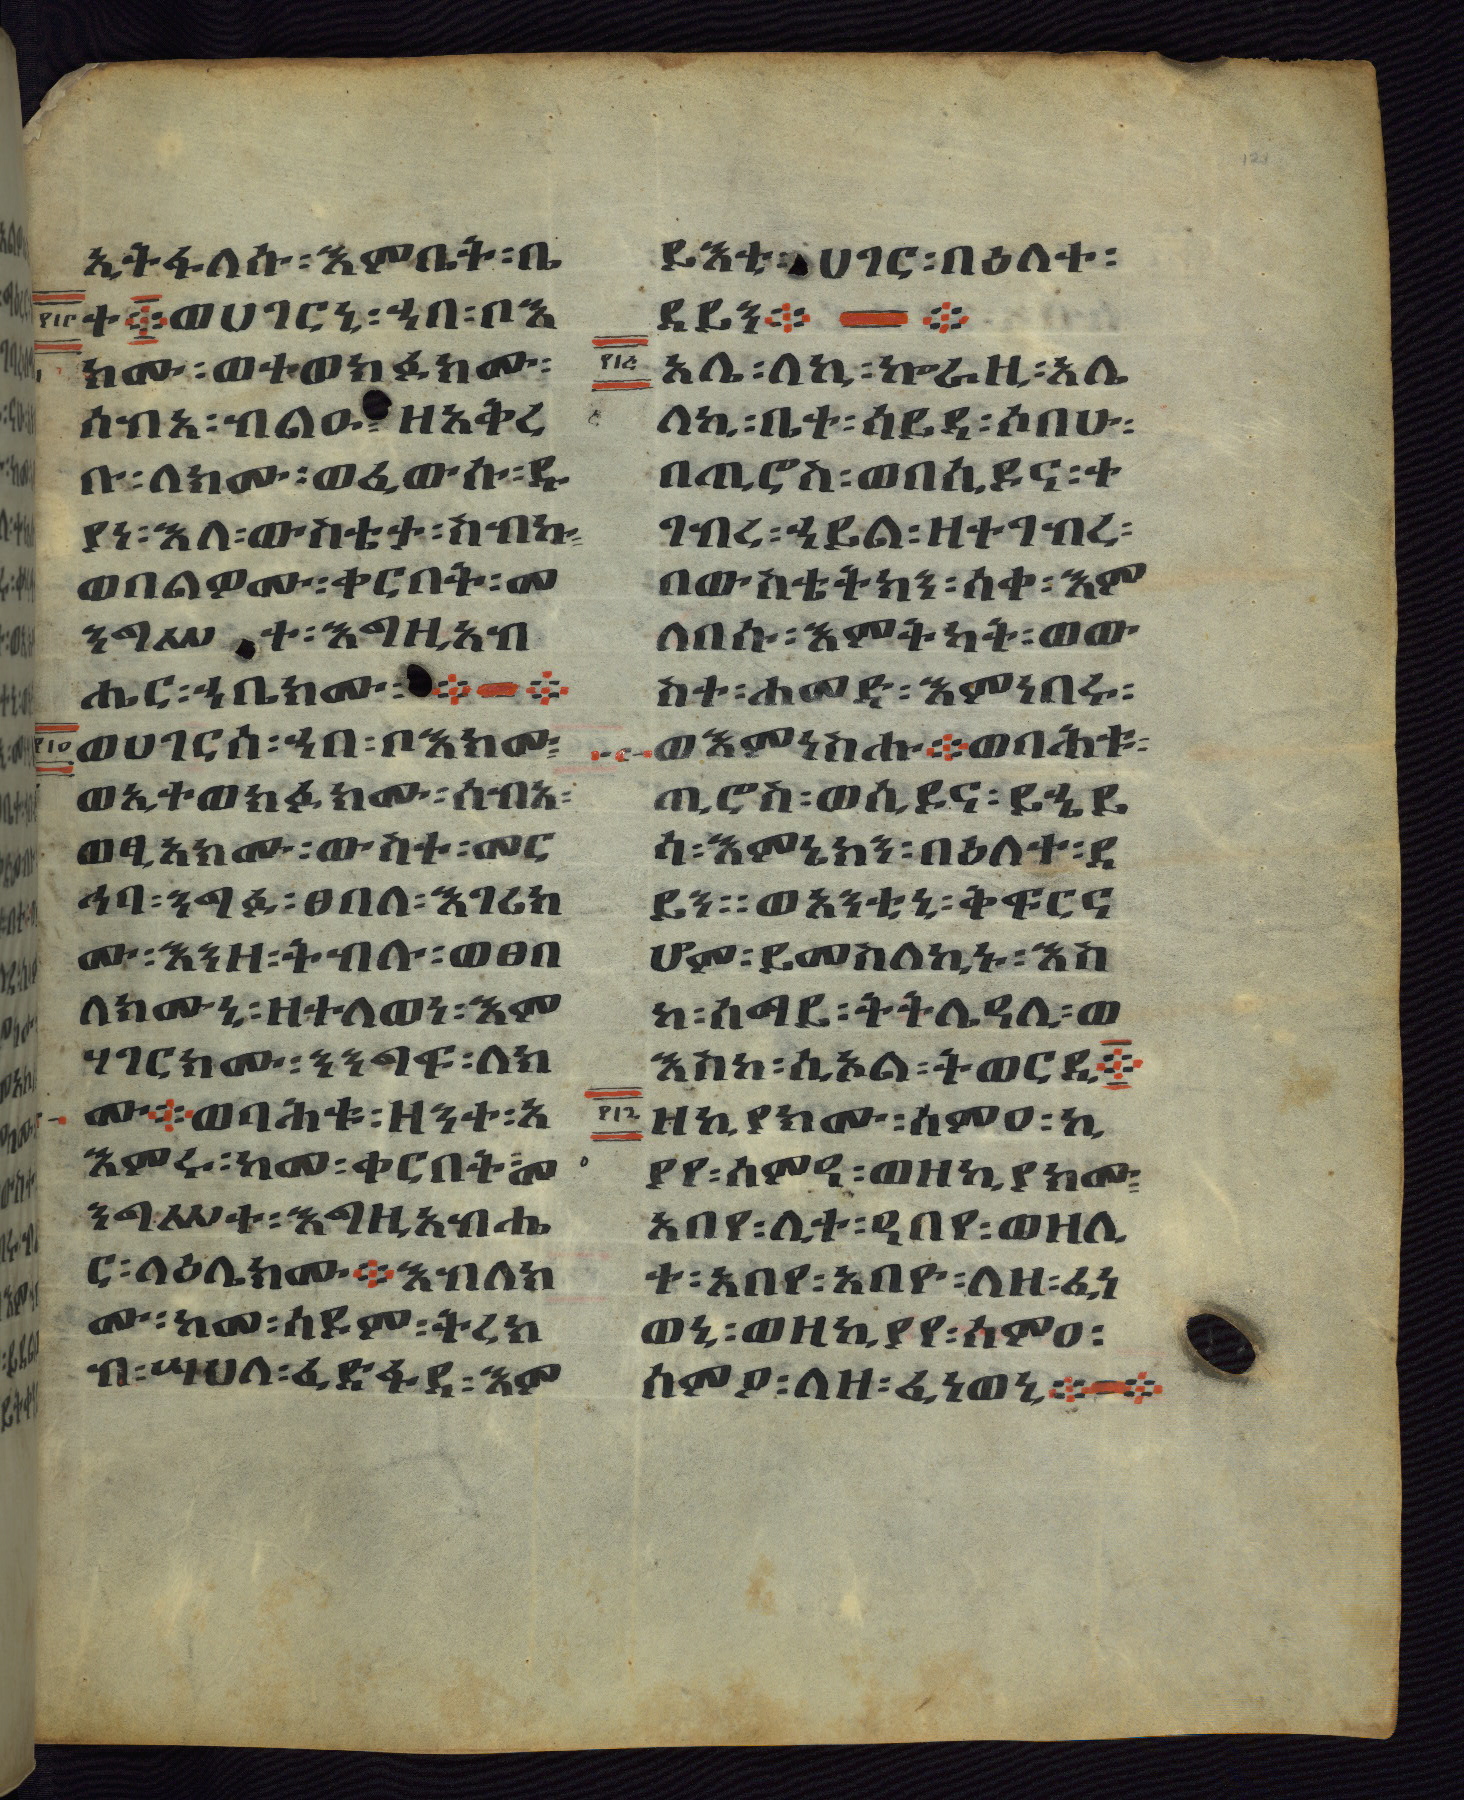 ኢትፋለሱ፡እምቤት፡ቤ
ት፨ወሀገርኒ፡ኀበ፡ቦእ
ክሙ፡ወተወክፉክሙ፡
ሰብእ፡ብልዑ፡ዘአቅረ
ቡ፡ለክሙ፡ወፈውሱ፡ዱ
የነ፡እለ፡ውስቴታ፡ሰብኩ፡
ወበልዎሙ፡ቀርበት፡መ
ንግሥተ፡እግዚአብ
ሔር፡ኀቤክሙ፡፨—፨
ወሀገርሰ፡ኀበ፡ቦእክሙ፡
ወኢተወክፉክሙ፡ሰብእ፡
ወፂአክሙ፡ውስተ፡መር
ሕባ፡ንግፉ፡ፀበለ፡እገሪክ
ሙ፡እንዘ፡ትብሉ፡ወፀበ
ለክሙኒ፡ዘተለወነ፡እም
ሃገርክሙ፡ንንግፍ፡ለክ
ሙ፨ወባሕቱ፡ዘንተ፡አ
እምሩ፡ከመ፡ቀርበት፡መ
ንግሥተ፡እግዚአብሔ
ር፡ላዕሌክሙ፨እብለክ
ሙ፡ከመ፡ሰዶም፡ትረክ
ብ፡ሣህለ፡ፈድፋደ፡እም
ይእቲ፡ሀገር፡በዕለተ፡
ደይን፨ — ፨
አሌ፡ለኪ፡ኮራዚ፡አሌ
ለኪ፡ቤተ፡ሳይዳ፡ሶበሁ፡
በጢሮስ፡ወበሲዶና፡ተ
ገብረ፡ኀይል፡ዘተገብረ፡
በውስቴትክን፡ሰቀ፡እም
ለበሱ፡እምትካት፡ወው
ስተ፡ሐመድ፡እምነበሩ፡
ወእምነስሑ፨ወባሕቱ፡
ጢሮስ፡ወሲዶና፡ይኄይ
ሳ፡እምኔክን፡በዕለተ፡ደ
ይን፡፡ወአንቲኒ፡ቅፍርና
ሆም፡ይመስለኪኑ፡እስ
ከ፡ሰማይ፡ትትሌዓሊ፡ወ
እስከ፡ሲኦል፡ትወርዲ፨
ዘኪያክሙ፡ሰምዐ፡ኪ
ያየ፡ሰምዓ፡ወዘኪያክሙ፡
አበየ፡ሊተ፡ዓበየ፡ወዘሊ
ተ፡አበየ፡አበዮ፡ለዘ፡ፈነ
ወኒ፡ወዘኪያየ፡ሰምዐ፡
ሰምዖ፡ለዘ፡ፈነወኒ፨—፨